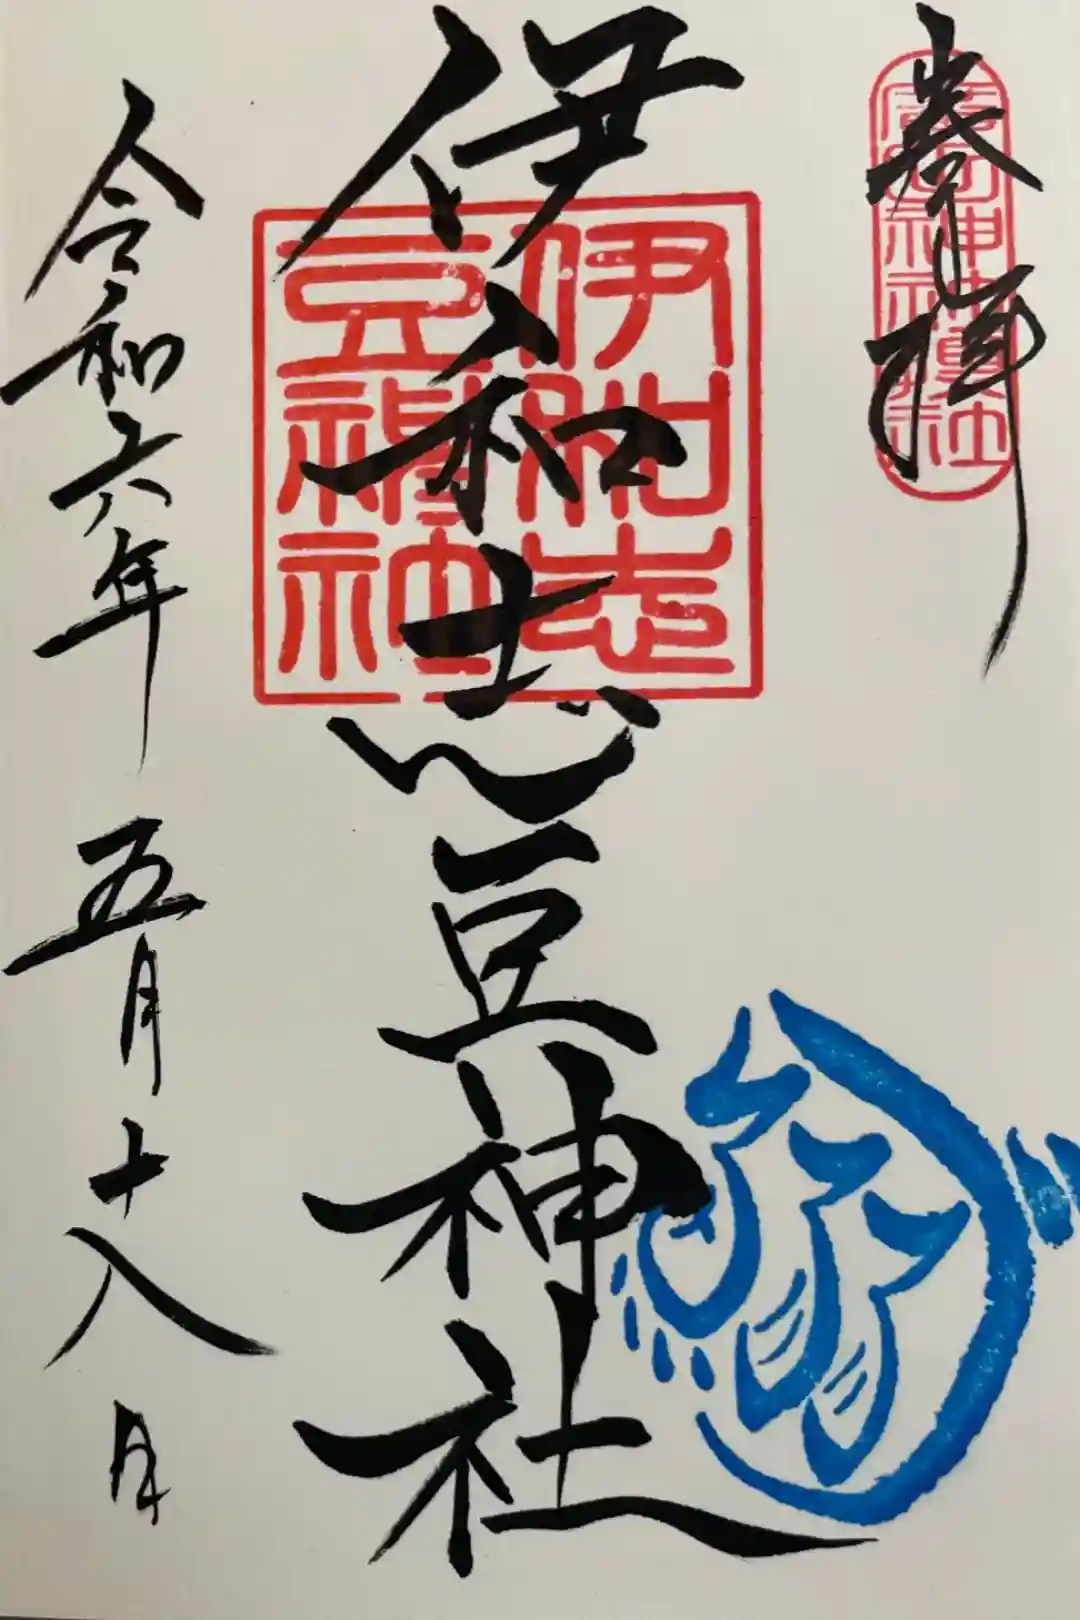 奉拝
伊和志豆神社
伊和志
豆神社
令和六年 五月十八日